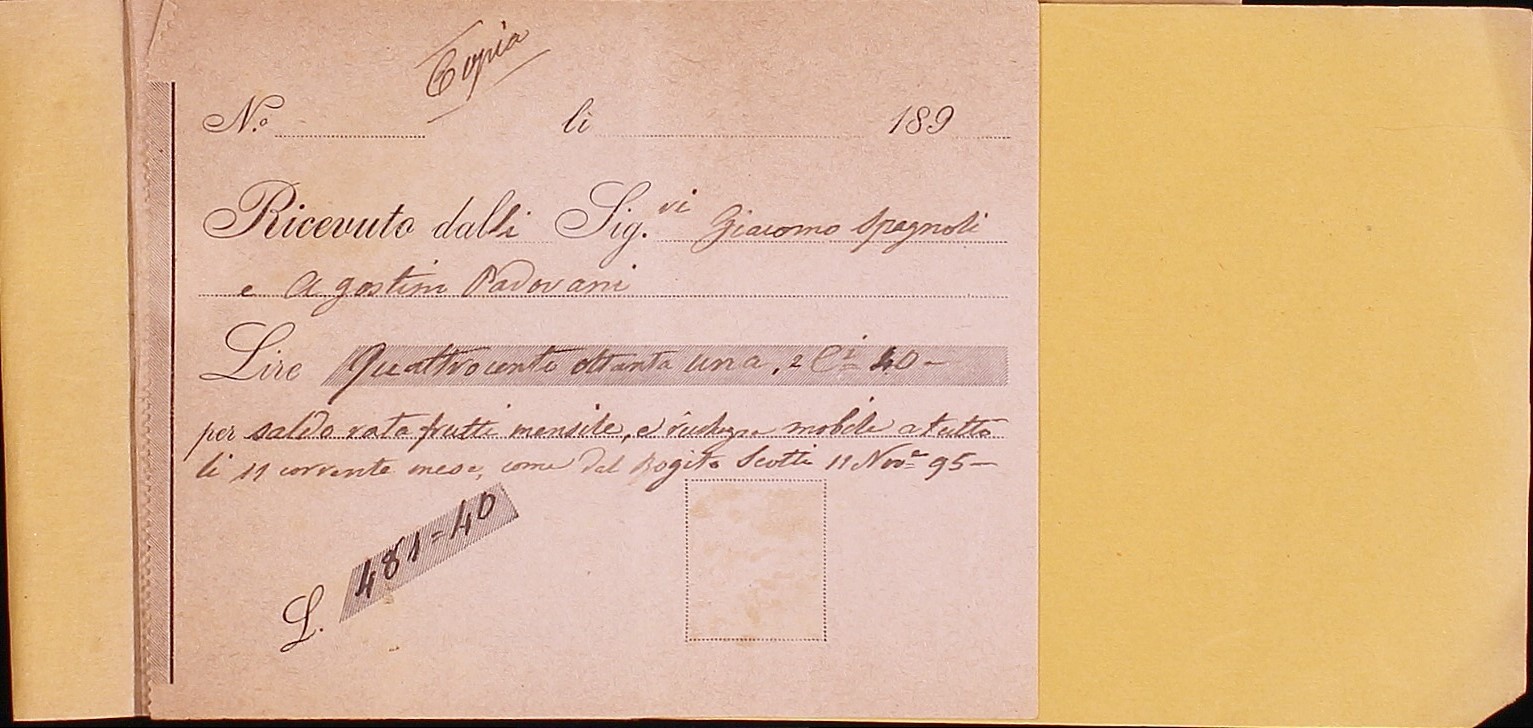 Copia
N.o lì 189
Ricevuto dalli Sig.ri Giacomo Spagnoli
e Agostini Padovani
Lire Quattrocento ottanta una, e C.i 40 -
per saldo rata frutti mensile, e richezza mobile a tutto
li 11 corrente mese, come dal Rogito Scotti 11 Nov.e 95 -
L. 481=40